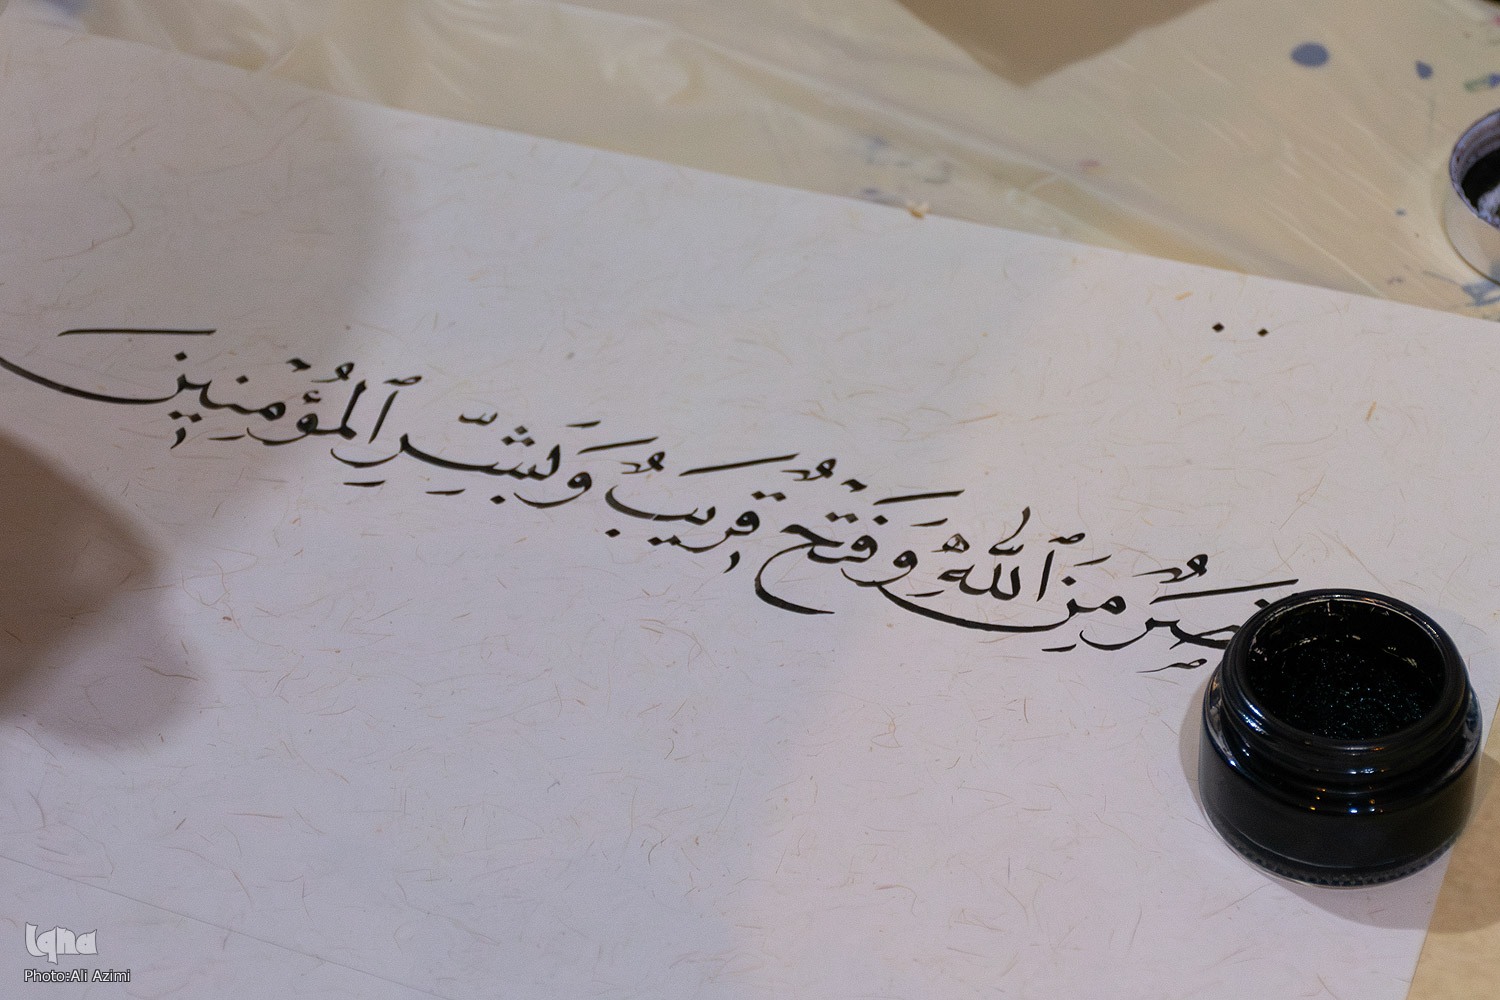 نَصْرٌ مِنَ ٱللَّهِ وَفَتْحٌ قَرِيبٌ وَبَشِّرِ ٱلْمُؤْمِنِينَ
Iqna
Photo:Ali Azimi